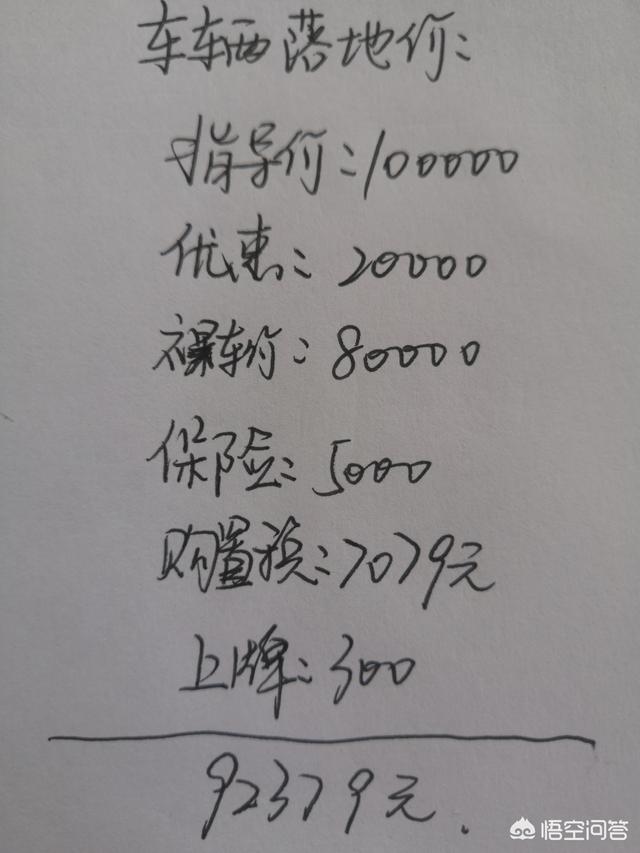 车车辆落地价:
指导价:100000
优惠:20000
裸车价:80000
保险:5000
购置税:7079元
上牌:300
92379元.
悟空问答